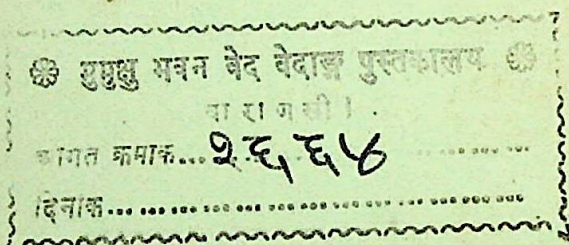 ❀ मुमुक्षु भवन वेद वेदाङ्ग पुस्तकालय ❀
वा रा ण सी ।
आगत क्रमाक... २६६४ ............
दिनाक................................................